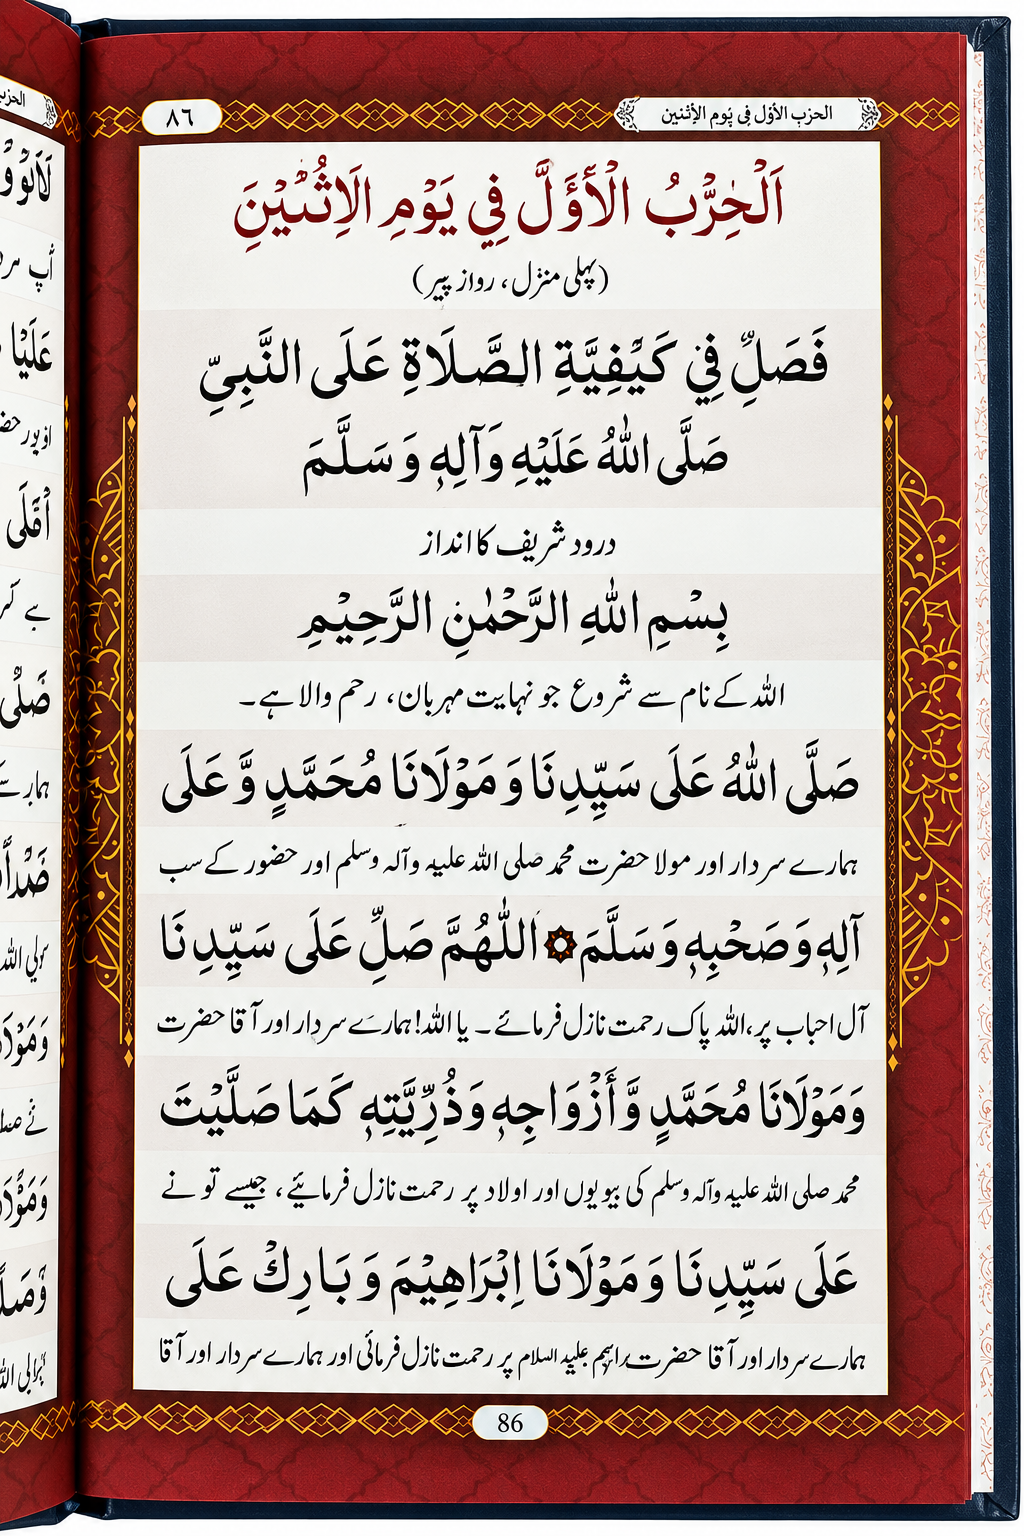 ٨٦
الحزب الأوّل في يَوم الإثنين
اَلْحِزْبُ الْأَوَّلَ فِي يَوْمِ الَاِثْنَيْنِ
(پہلی منزل، رواز پیر)
فَصَلِ فِيْ كَيْفِيَّةِ الصَّلَاةِ عَلَى النَّبِيِّ
صَلَّى اللهُ عَلَيْهِ وَآلِهٖ وَسَلَّمَ
درود شریف کا انداز
بِسْمِ اللهِ الرَّحْمٰنِ الرَّحِيْمِ
اللہ کے نام سے شروع جو نہایت مہربان، رحم والا ہے۔
صَلَّى اللهُ عَلَى سَيِّدِنَا وَمَوْلَانَا مُحَمَّدٍ وَّعَلَى
ہمارے سردار اور مولا حضرت محمد صلی اللہ علیہ وآلہ وسلم اور حضور کے سب
آلِهٖ وَصَحْبِهٖ وَسَلَّمَ ۞ اَللّٰهُمَّ صَلِّ عَلَى سَيِّدِنَا
آل احباب پر، اللہ پاک رحمت نازل فرمائے۔ یا اللہ! ہمارے سردار اور آقا حضرت
وَمَوْلَانَا مُحَمَّدٍ وَّأَزْوَاجِهٖ وَذُرِّيَّتِهٖ كَمَا صَلَّيْتَ
محمد صلی اللہ علیہ وآلہ وسلم کی بیویوں اور اولاد پر رحمت نازل فرمایئے، جیسے تو نے
عَلَى سَيِّدِنَا وَمَوْلَانَا اِبْرَاهِيْمَ وَبَارِكْ عَلَى
ہمارے سردار اور آقا حضرت براہیم علیہ السلام پر رحمت نازل فرمائی اور ہمارے سردار اور آقا
86